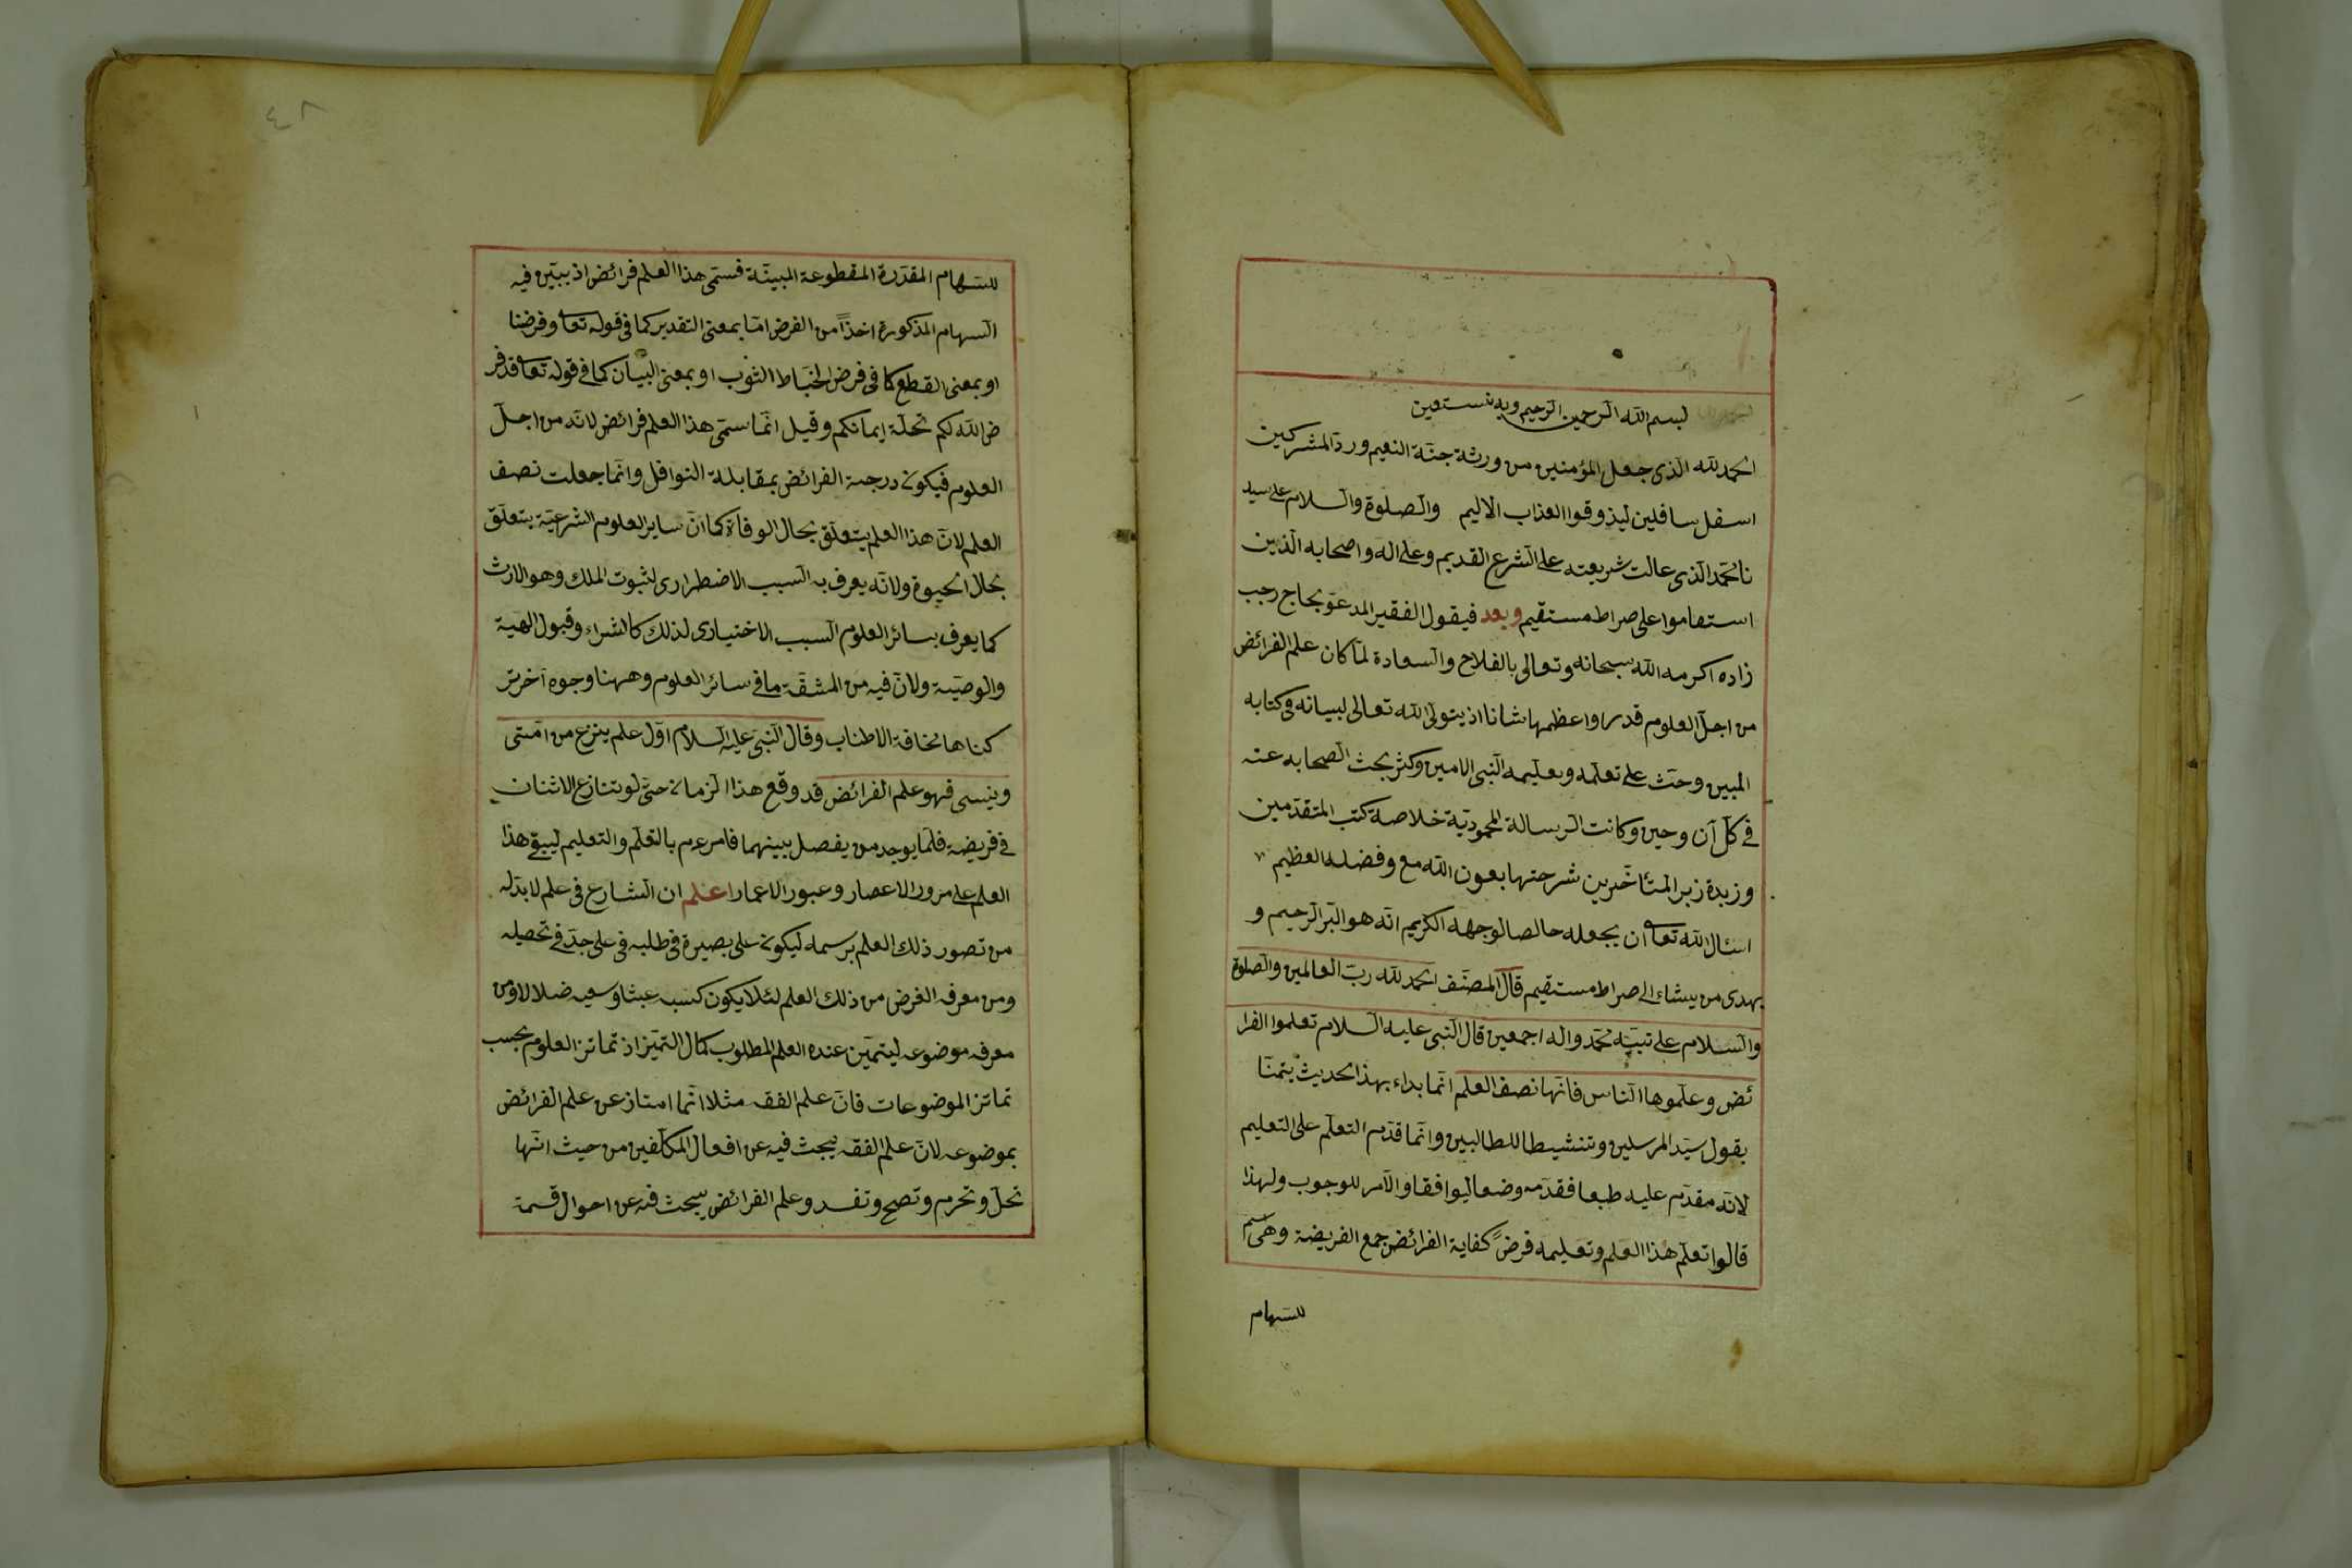 بسم الله الرحمن الرحيم وبه نستعين
الحمد لله الذى جعل المؤمنين من ورثة جنة النعيم ورد المشركين
اسفل سافلين ليذوقوا العذاب الاليم والصلوة والسلام على سيد
نا محمد الذى عالت شريعته على الشرع القديم وعلى اله واصحابه الذين
استقاموا على صراط مستقيم وبعد فيقول الفقير المدعو بحاج رجب
زاده اكرمه الله سبحانه وتعالى بالفلاح والسعادة لما كان علم الفرائض
من اجل العلوم قدرا واعظمها شانا اذ يتولى الله تعالى لبيانه فى كتابه
المبين وحث على تعلمه وتعليمه النبى الامين وكثر بحث الصحابه عنه
فى كل آن وحين وكانت الرسالة المحمودية خلاصة كتب المتقدمين
وزبدة زبر المتأخرين شرحتها بعون الله مع وفضله العظيم
اسئال الله تعا ان يجعله خالصا لوجهه الكريم انه هو البر الرحيم و
يهدى من يشاء الى صراط مستقيم قال المصنف الحمد لله رب العالمين والصلوة
والسلام على نبيه محمد واله اجمعين قال النبى عليه السلام تعلموا الفرا
ئض وعلموها الناس فانها نصف العلم انما بداء بهذا الحديث تيمنا
بقول سيد المرسلين وتنشيطا للطالبين وانما قدم التعلم على التعليم
لانه مقدم عليه طبعا فقدمه وضعا ليوافقا والامر للوجوب ولهذا
قالوا تعلم هذا العلم وتعليمه فرض كفاية الفرائض جمع الفريضة وهى اسم
للسهام
٤٨
للسهام المقدرة المقطوعة المبينة فسمى هذا العلم فرائض اذ يبين فيه
السهام المذكورة اخذاً من الفرض اما بمعنى التقدير كما فى قوله تعا وفرضنا
او بمعنى القطع كما فى فرض الخياط الثوب او بمعنى البيان كما فى قوله تعا قد فر
ض الله لكم تحلة ايمانكم وقيل انما سمى هذا العلم فرائض لانه من اجل
العلوم فيكون درجة الفرائض بمقابلة النوافل وانما جعلت نصف
العلم لان هذا العلم يتعلق بحال الوفاة كما ان ساير العلوم الشرعية يتعلق
بحال الحيوة ولانه يعرف به السبب الاضطرارى لثبوت الملك وهو الارث
كما يعرف بسائر العلوم السبب الاختيارى لذلك كالشراء وقبول الهبة
والوصية ولان فيه من المشقة ما فى سائر العلوم وههنا وجوه آخر تر
كناها مخافة الاطناب وقال النبى عليه السلام اول علم ينزع من امتى
وينسى فهو علم الفرائض قد وقع هذا الزمان حتى لو يتنازع الاثنان
فى فريضة فلما يوجد من يفصل بينهما فامر ءم بالتعلم والتعليم ليبقى هذا
العلم على مرور الاعصار وعبور الاعمار اعلم ان الشارع فى علم لا بد له
من تصور ذلك العلم برسمه ليكون على بصيرة فى طلبه فى على جد فى تحصيله
ومن معرفه الغرض من ذلك العلم لئلا يكون كسبه عبثا وسعيه ضلالا ومن
معرفه موضوعه ليتميز عنده العلم المطلوب كمال التميز اذ تمائز العلوم بحسب
تمائز الموضوعات فان علم الفقه مثلا انما امتاز عن علم الفرائض
بموضوعه لان علم الفقه يبحث فيه عن افعال المكلفين من حيث انها
تحل وتحرم وتصح وتفسد وعلم الفرائض يبحث فيه عن احوال قسمة